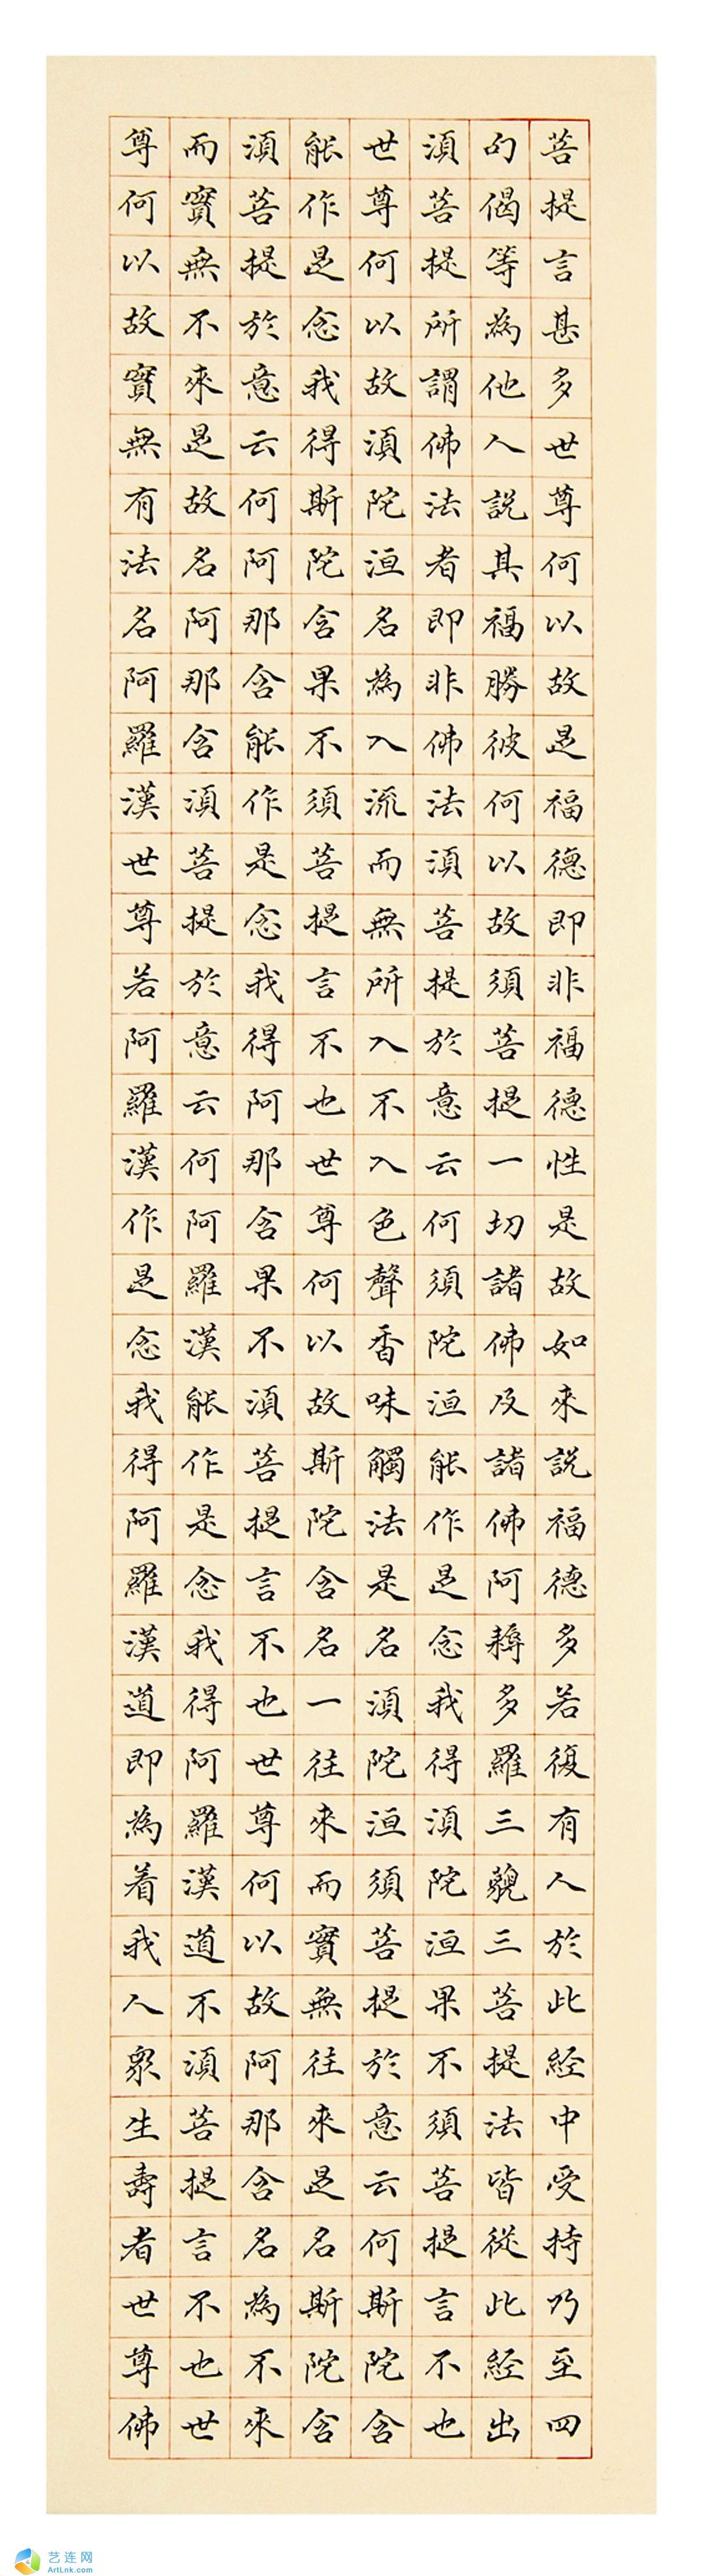 菩提言甚多世尊何以故是福德即非福德性是故如來說福德多若復有人於此経中受持乃至四
句偈等為他人說其福勝彼何以故須菩提一切諸佛及諸佛阿耨多羅三藐三菩提法皆從此経出
須菩提所謂佛法者即非佛法須菩提於意云何須陀洹能作是念我得須陀洹果不須菩提言不也
世尊何以故須陀洹名為入流而無所入不入色聲香味觸法是名須陀洹須菩提於意云何斯陀含
能作是念我得斯陀含果不須菩提言不也世尊何以故斯陀含名一往來而實無往來是名斯陀含
須菩提於意云何阿那含能作是念我得阿那含果不須菩提言不也世尊何以故阿那含名為不來
而實無不來是故名阿那含須菩提於意云何阿羅漢能作是念我得阿羅漢道不須菩提言不也世
尊何以故實無有法名阿羅漢世尊若阿羅漢作是念我得阿羅漢道即為着我人眾生壽者世尊佛
艺连网
ArtLnk.com